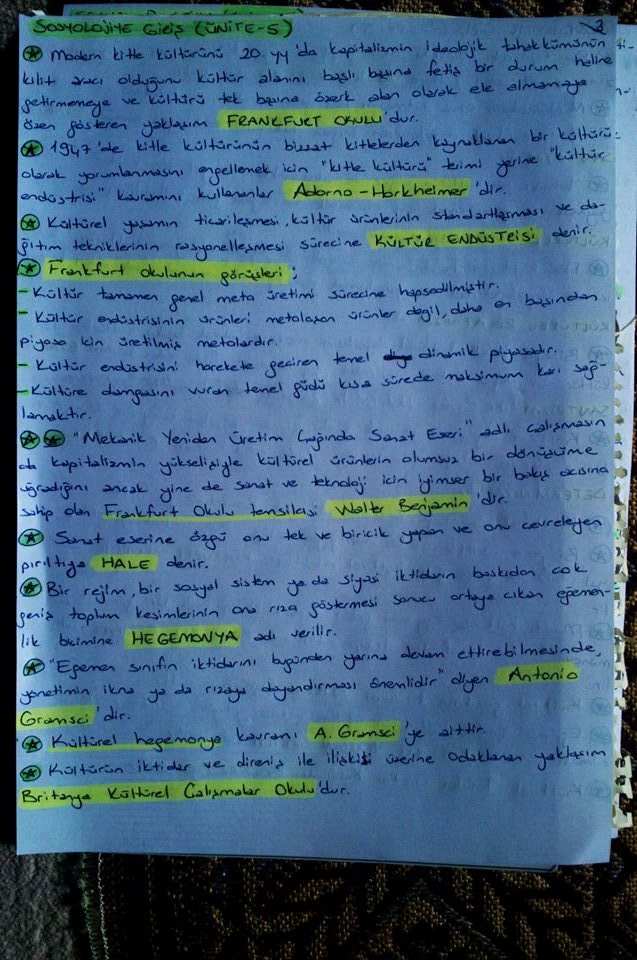 SOSYOLOJİYE GİRİŞ (ÜNİTE-5)
3
Modern kitle kültürünü 20. yy'da kapitalizmin ideolojik tahakkümünün
kilit aracı olduğunu kültür alanını başlı başına fetiş bir durum haline
getirmemeye ve kültürü tek başına özerk alan olarak ele almamaya
özen gösteren yaklaşım FRANKFURT OKULU'dur.
1947'de kitle kültürünün bizzat kitlelerden kaynaklanan bir kültür
olarak yorumlanmasını engellemek için "kitle kültürü" terimi yerine "kültür
endüstrisi" kavramını kullananlar Adorno-Horkheimer'dir.
Kültürel yaşamın ticarileşmesi, kültür ürünlerinin standartlaşması ve da-
ğıtım tekniklerinin rasyonelleşmesi sürecine KÜLTÜR ENDÜSTRİSİ denir.
Frankfurt okulunun görüşleri;
- Kültür tamamen genel meta üretimi sürecine hapsedilmiştir.
- Kültür endüstrisinin ürünleri metalaşan ürünler değil, daha en başından
piyasa için üretilmiş metalardır.
- Kültür endüstrisini harekete geçiren temel dinamik piyasadır.
- Kültüre damgasını vuran temel güdü kısa sürede maksimum karı sağ-
lamaktır.
"Mekanik Yeniden Üretim Çağında Sanat Eseri" adlı çalışmasın
da kapitalizmin yükselişiyle kültürel ürünlerin olumsuz bir dönüşüme
uğradığını ancak yine de sanat ve teknoloji için iyimser bir bakış açısına
sahip olan Frankfurt Okulu temsilcisi Walter Benjamin'dir.
Sanat eserine özgü onu tek ve biricik yapan ve onu çevreleyen
pırıltıya HALE denir.
Bir rejim, bir sosyal sistem ya da siyasi iktidarın baskıdan çok
geniş toplum kesimlerinin ona rıza göstermesi sonucu ortaya çıkan egemen-
lik biçimine HEGEMONYA adı verilir.
"Egemen sınıfın iktidarını bugünden yarına devam ettirebilmesinde,
yönetimin ikna ya da rızaya dayandırması önemlidir" diyen Antonio
Gramsci'dir.
Kültürel hegemonya kavramı A. Gramsci'ye aittir.
Kültürün iktidar ve direniş ile ilişkisi üzerine odaklanan yaklaşım
Britanya Kültürel Çalışmalar Okulu'dur.